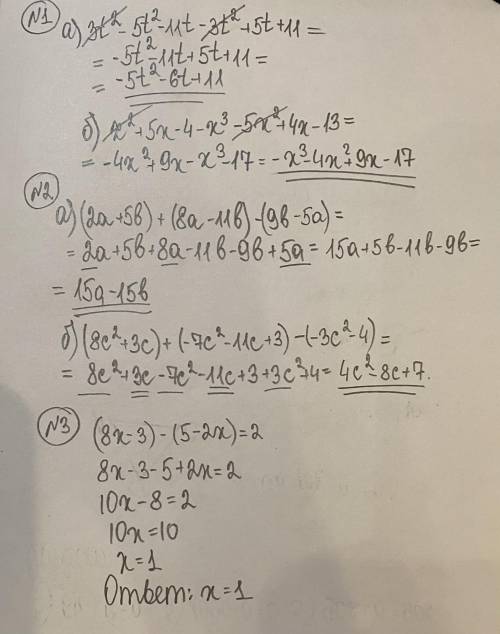 №1
а) 3t² - 5t² - 11t - 3t² + 5t + 11 =
= -5t² - 11t + 5t + 11 =
= -5t² - 6t + 11
б) x² + 5x - 4 - x³ - 5x² + 4x - 13 =
= -4x² + 9x - x³ - 17 = -x³ - 4x² + 9x - 17
№2
а) (2a + 5b) + (8a - 11b) - (9b - 5a) =
= 2a + 5b + 8a - 11b - 9b + 5a = 15a + 5b - 11b - 9b =
= 15a - 15b
б) (8c² + 3c) + (-7c² - 11c + 3) - (-3c² - 4) =
= 8c² + 3c - 7c² - 11c + 3 + 3c² + 4 = 4c² - 8c + 7.
№3
(8x - 3) - (5 - 2x) = 2
8x - 3 - 5 + 2x = 2
10x - 8 = 2
10x = 10
x = 1
Ответ: x = 1